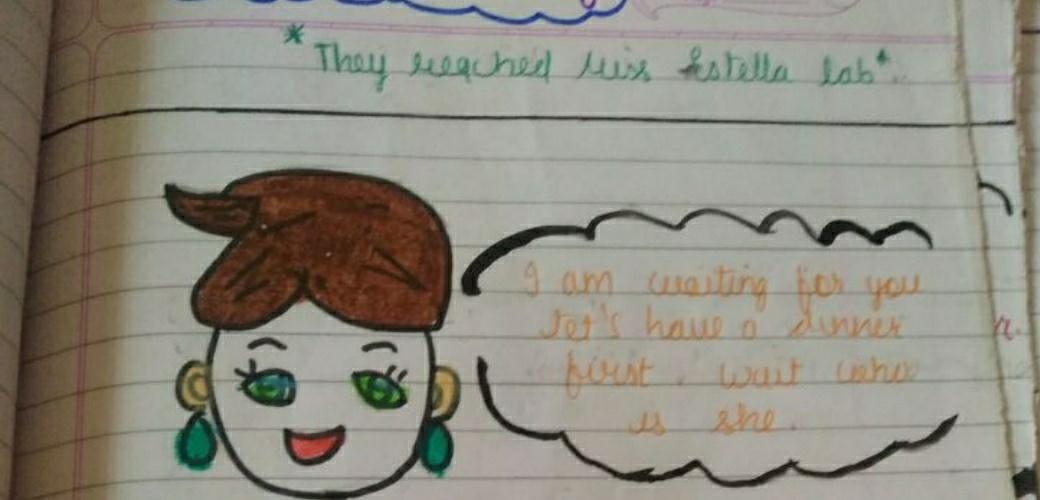 *They reached Miss Estella lab*.
I am waiting for you
Let's have a dinner
first. wait who
is she.
r.